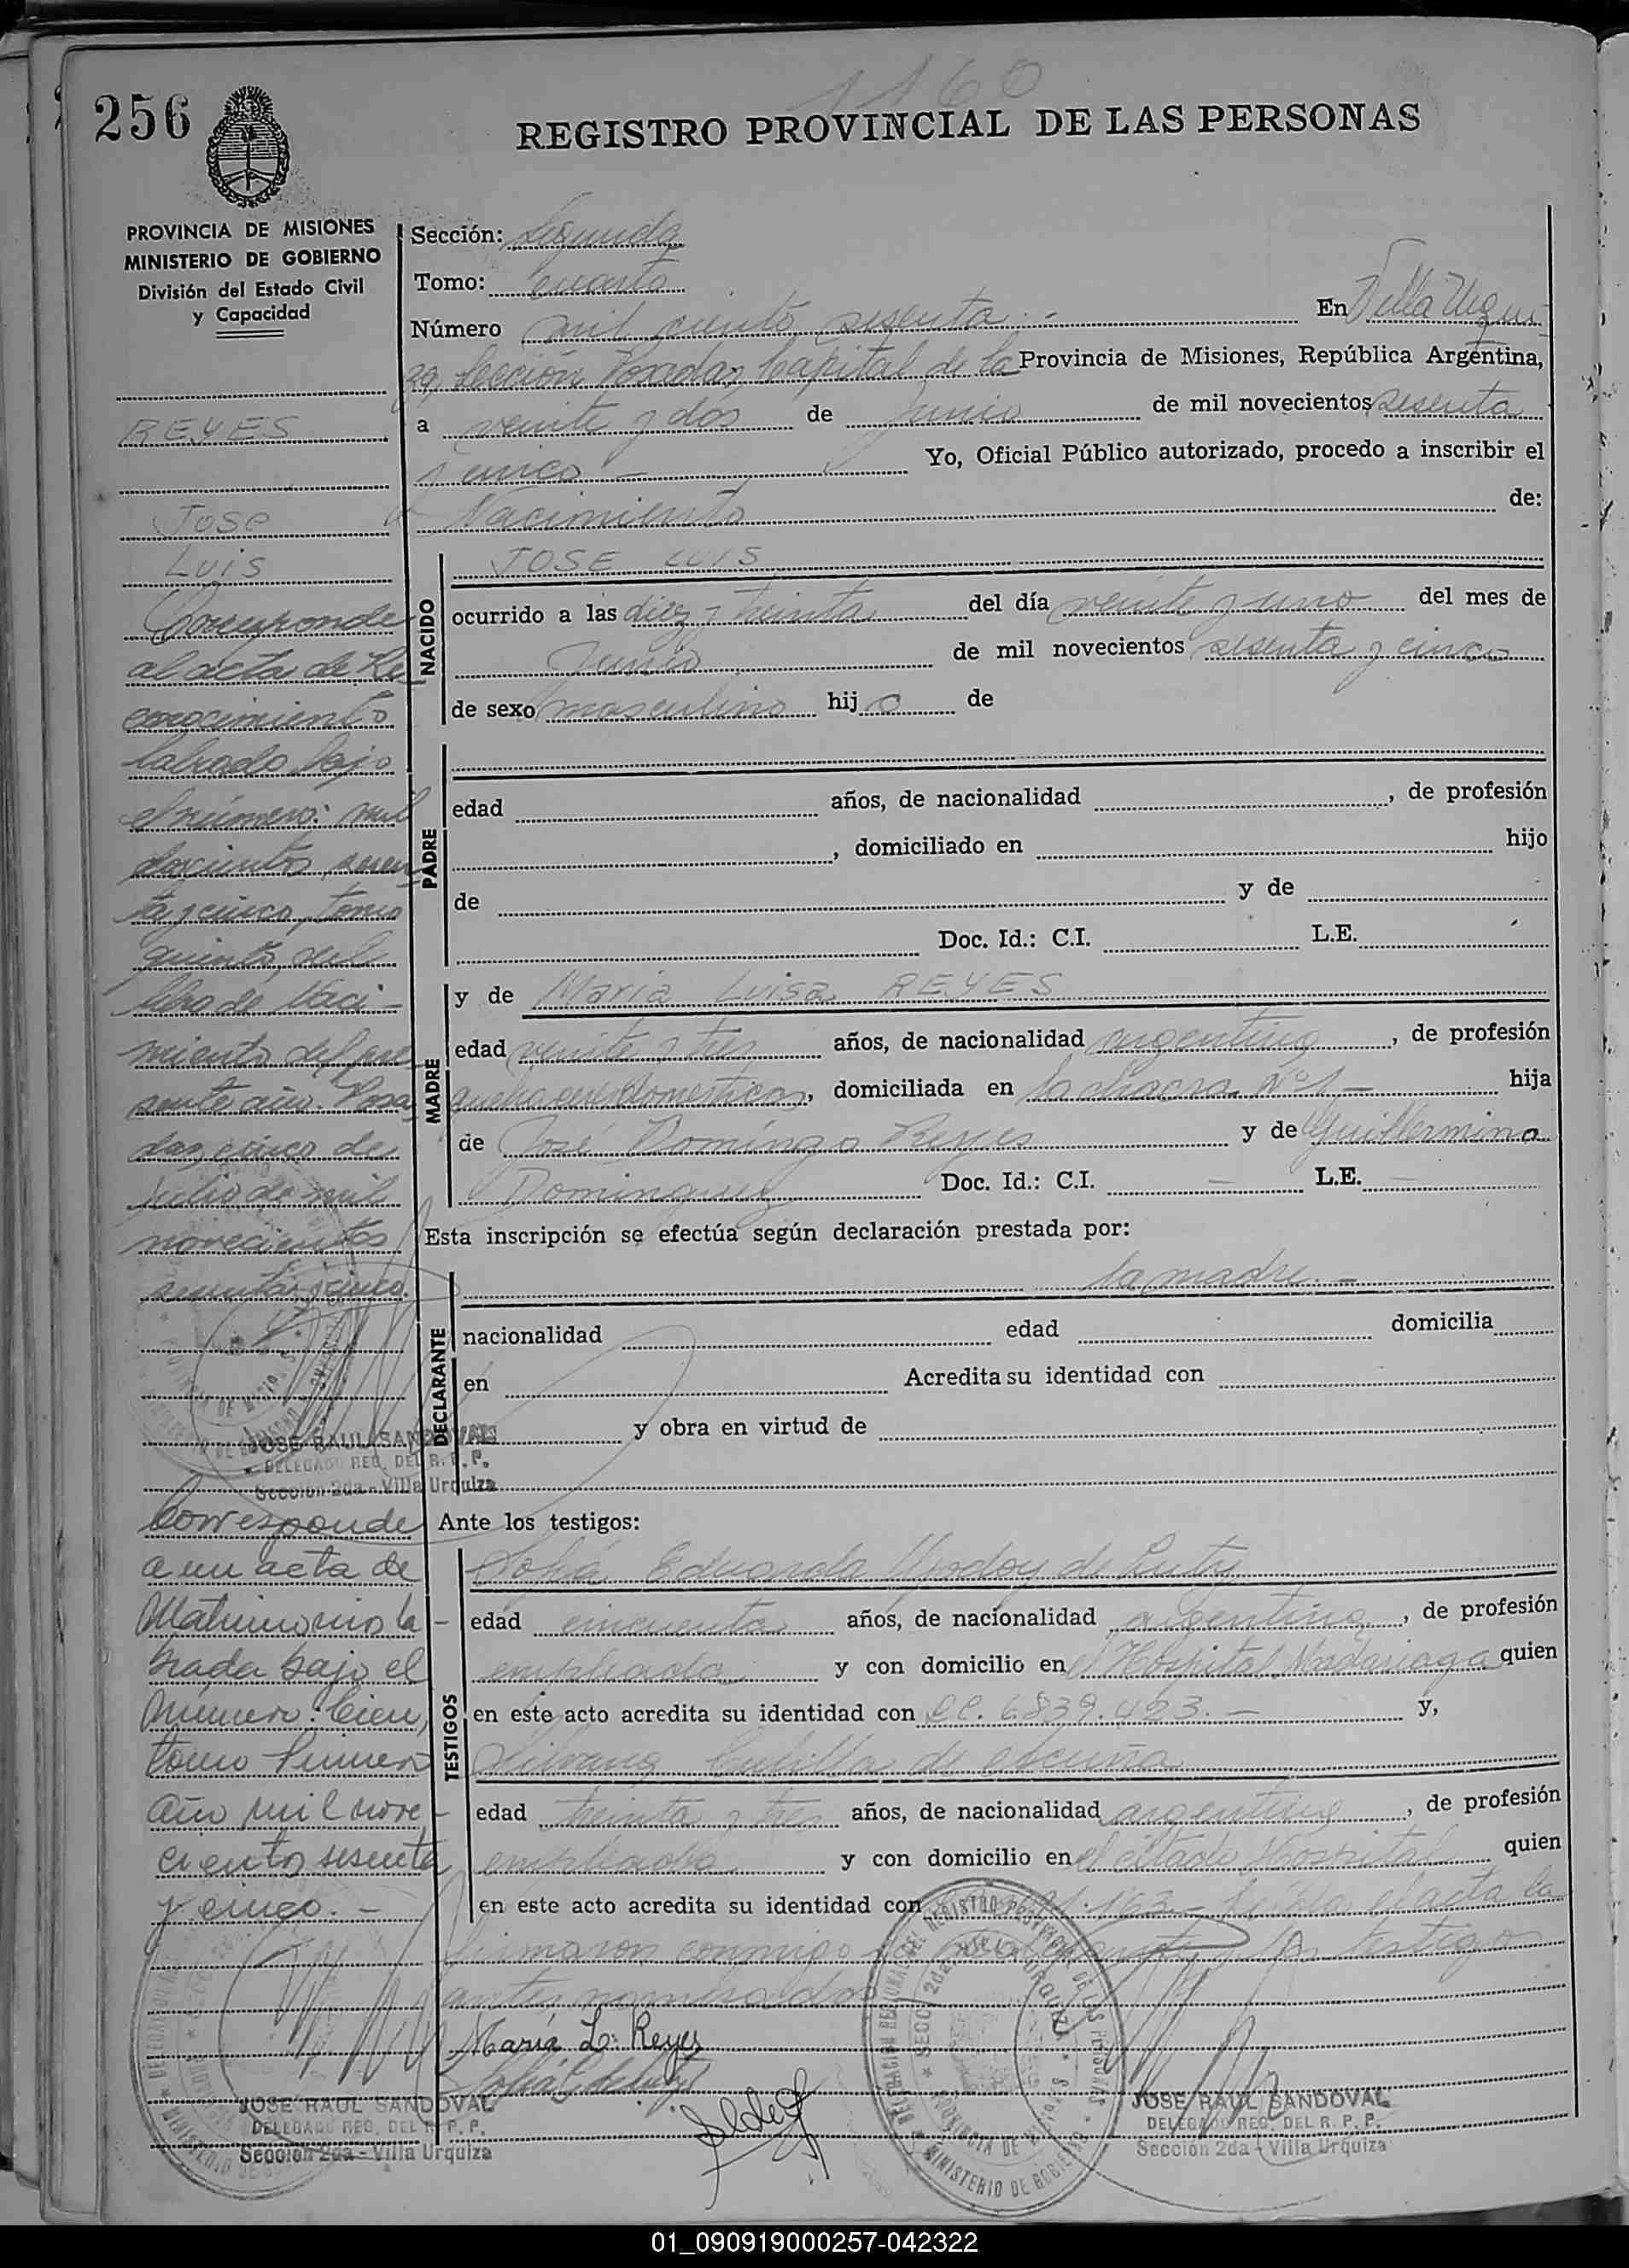 1160
256
REGISTRO PROVINCIAL DE LAS PERSONAS
PROVINCIA DE MISIONES
MINISTERIO DE GOBIERNO
División del Estado Civil
y Capacidad
REYES
Jose
Luis
Corresponde
al acta de Re
conocimiento
labrado bajo
el número: mil
doscientos sesen
ta y cinco, tomo
quinto, del
libro de Naci-
miento del pre
sente año. Posa
das, cinco de
julio de mil
novecientos
sesenta y cinco.
JOSE RAUL SANDOVAL
DELEGADO REG. DEL R. P. P.
Sección 2da - Villa Urquiza
Corresponde
a un acta de
Matrimonio la-
brada bajo el
número: Cien,
tomo Primero
año mil nove-
cientos sesenta
y cinco. -
JOSE RAUL SANDOVAL
DELEGADO REG. DEL R. P. P.
Sección 2da - Villa Urquiza
Sección: Segunda
Tomo: cuarto
Número mil ciento sesenta. - En Villa Urqui
za, Sección Posadas, Capital de la Provincia de Misiones, República Argentina,
a veinte y dos de Junio de mil novecientos sesenta
y cinco - Yo, Oficial Público autorizado, procedo a inscribir el
Nacimiento de:
NACIDO
JOSE LUIS
ocurrido a las diez y treinta del día veinte y uno del mes de
Junio de mil novecientos sesenta y cinco
de sexo masculino hijo de
PADRE
edad años, de nacionalidad , de profesión
, domiciliado en hijo
de y de
Doc. Id.: C.I. L.E.
MADRE
y de Maria Luisa REYES
edad veinte y tres años, de nacionalidad argentina , de profesión
quehaceres domesticos, domiciliada en la chacra Nº 1 - hija
de José Domingo Reyes y de Guillermina
Dominguez Doc. Id.: C.I. - L.E. -
Esta inscripción se efectúa según declaración prestada por:
DECLARANTE
la madre. -
nacionalidad edad domicilia
en Acredita su identidad con
y obra en virtud de
Ante los testigos:
TESTIGOS
Sofia Eduarda Godoy de
edad cincuenta años, de nacionalidad argentina , de profesión
empleada y con domicilio en el Hospital Madariaga quien
en este acto acredita su identidad con L.C. 6839.423. - y,
Silvana de Acuña
edad treinta y tres años, de nacionalidad argentina , de profesión
empleada y con domicilio en el citado Hospital quien
en este acto acredita su identidad con 163 - Leida el acta la
firmaron conmigo testigos
antes nombrados
María L. Reyes
DELEGACION REGIONAL DEL REGISTRO PROVINCIAL DE LAS PERSONAS
SECC. 2da. VILLA URQUIZA
PROVINCIA DE MISIONES
MINISTERIO DE GOBIERNO
JOSE RAUL SANDOVAL
DELEGADO REG. DEL R. P. P.
Sección 2da - Villa Urquiza
01_090919000257-042322